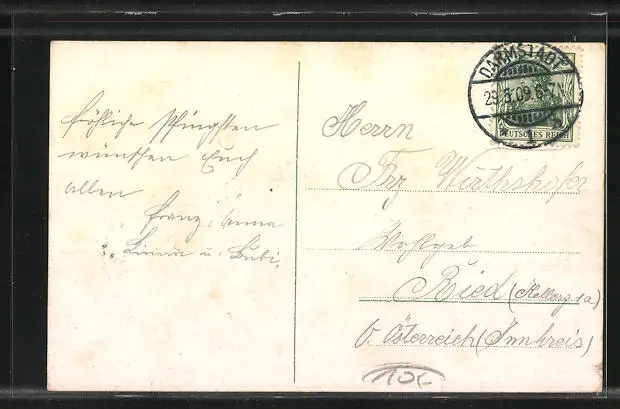 Fröhliche Pfingsten
wünschen Euch
allen
Franz, Anna
u. Bubi.
DARMSTADT
29.5.09 6-7N
DEUTSCHES REICH
Herrn
Frz Wirthshofer
Wohlgeb
Ried (Kellerg 1a)
O. Österreich (Innkreis)